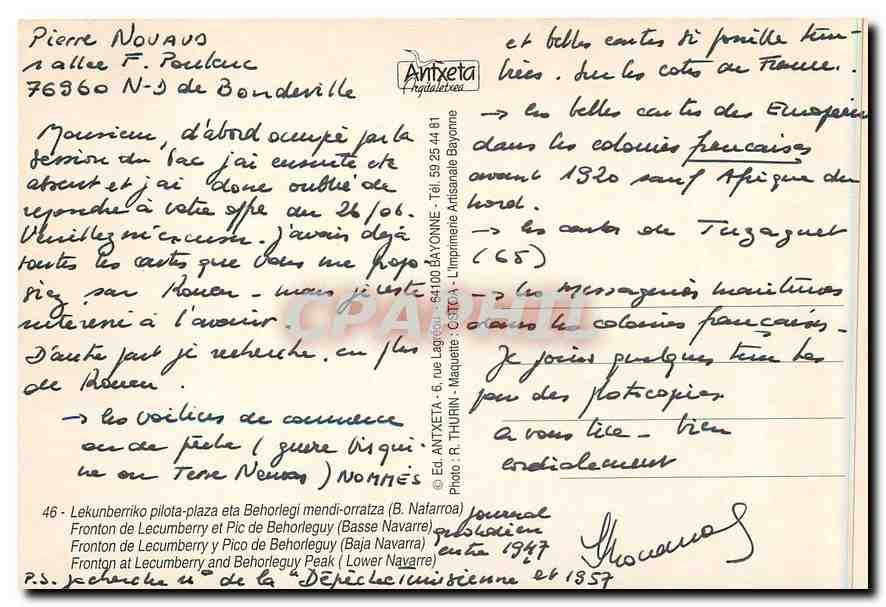 Pierre NOUAUD
1 allee F. Poulenc
76960 N-D de Bondeville
Monsieur, d'abord occupé par la
session du bac j'ai ensuite été
absent et j'ai donc oublié de
repondre à votre offre du 26/06.
Veuillez m'excuser. J'avais déjà
toutes les cartes que vous me propo-
siez sur Rouen - mais je reste
interessé à l'avenir.
D'autre part je recherche, en plus
de Rouen.
→ les voiliers de commerce
ou de pêche (guerre bisqui-
ne ou Terre Neuvas) NOMMÉS
Antxeta
Argitaletxea
© Ed. ANTXETA - 6, rue Lagréou - 64100 BAYONNE - Tél. 59 25 44 81
Photo : R. THURIN - Maquette : OSTOA - L'Imprimerie Artisanale Bayonne
et belles cartes si possible tim-
brées. Sur les cotes de France.
→ les belles cartes des Européens
dans les colonies francaises
avant 1920 sauf Afrique du
Nord.
→ les cartes de Tuzaguet
(65)
→ les Messageries maritimes
dans les colonies françaises.
Je joins quelques timbres
pour des photocopies.
A vous lire - bien
cordialement
46 - Lekunberriko pilota-plaza eta Behorlegi mendi-orratza (B. Nafarroa)
Fronton de Lecumberry et Pic de Behorleguy (Basse Navarre)
Fronton de Lecumberry y Pico de Behorleguy (Baja Navarra)
Fronton at Lecumberry and Behorleguy Peak ( Lower Navarre)
P.S. je cherche n° de la "Dépêche Tunisienne
journal
quotidien
entre 1947
et 1957
CPAPHIL